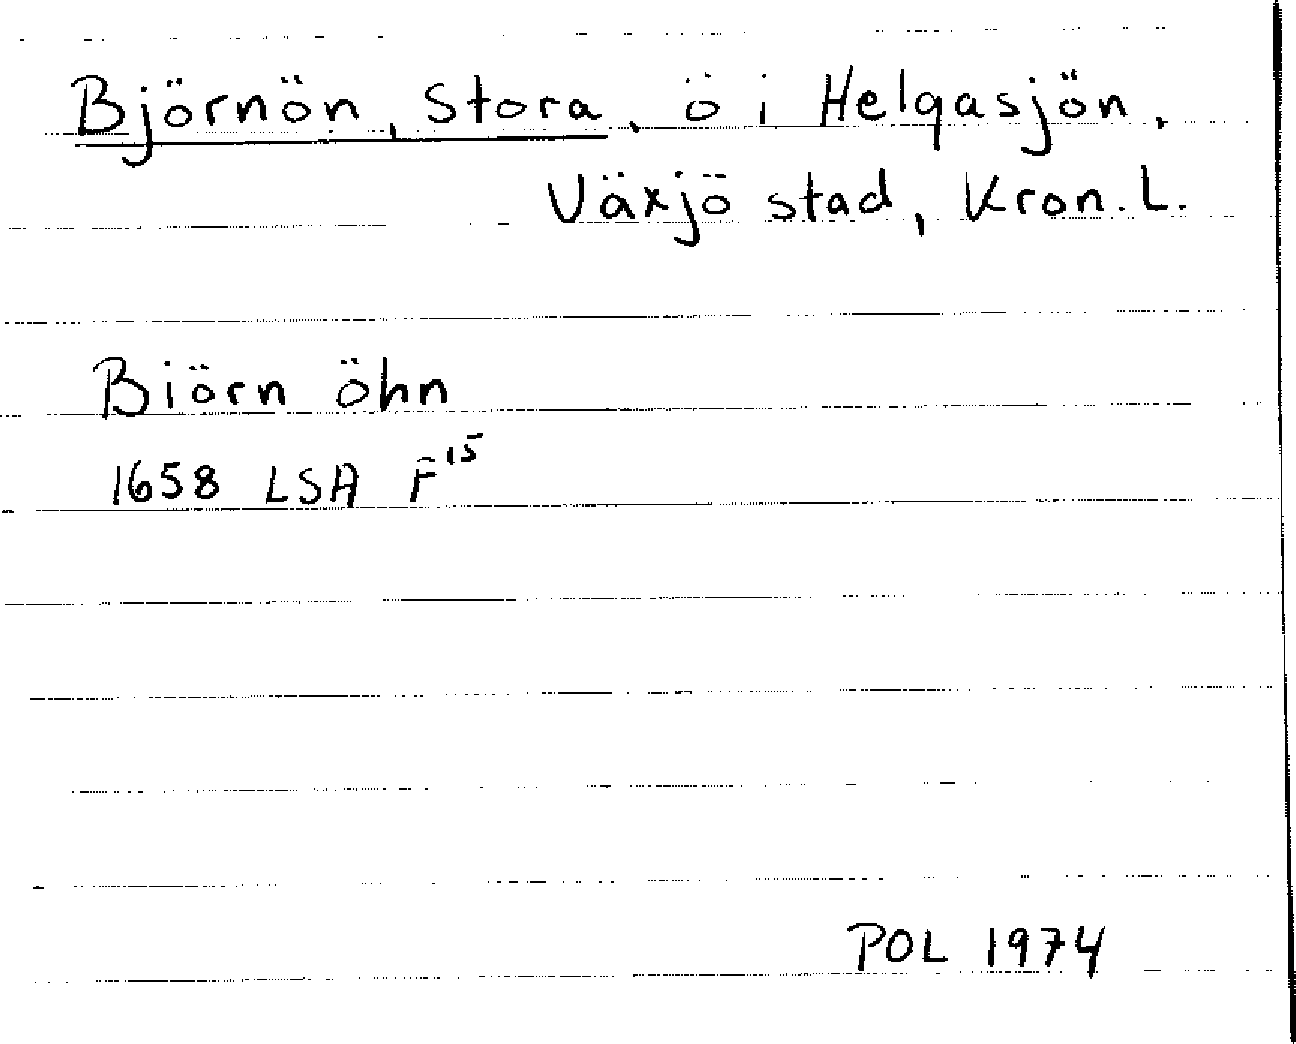 Björnön, Stora, ö i Helgasjön,
Växjö stad, Kron. L.
Biörn öhn
1658 LSA F15
POL 1974